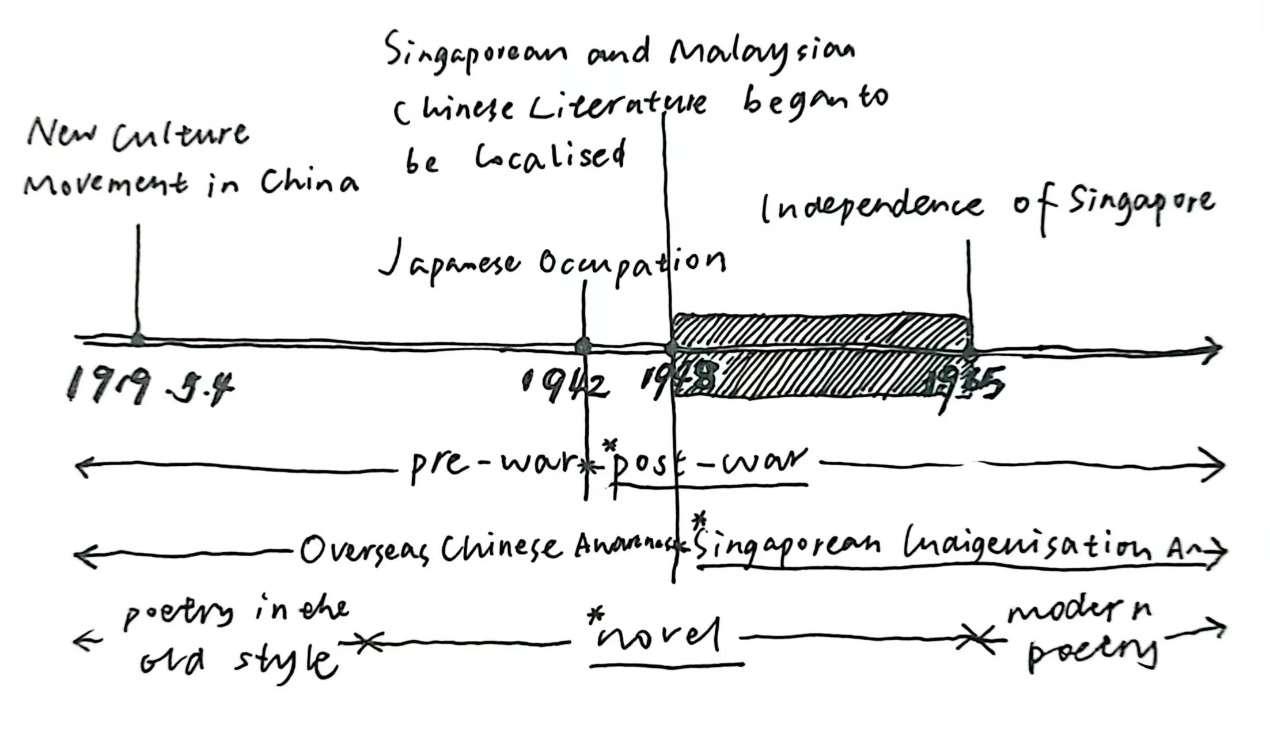 Singaporean and Malaysian
Chinese Literature began to
be localised
New Culture
Movement in China
Independence of Singapore
Japanese Occupation
1919.5.4
1942
1948
1965
pre-war
*post-war
Overseas Chinese Awareness
*Singaporean Indigenisation
poetry in the
old style
*novel
modern
poetry